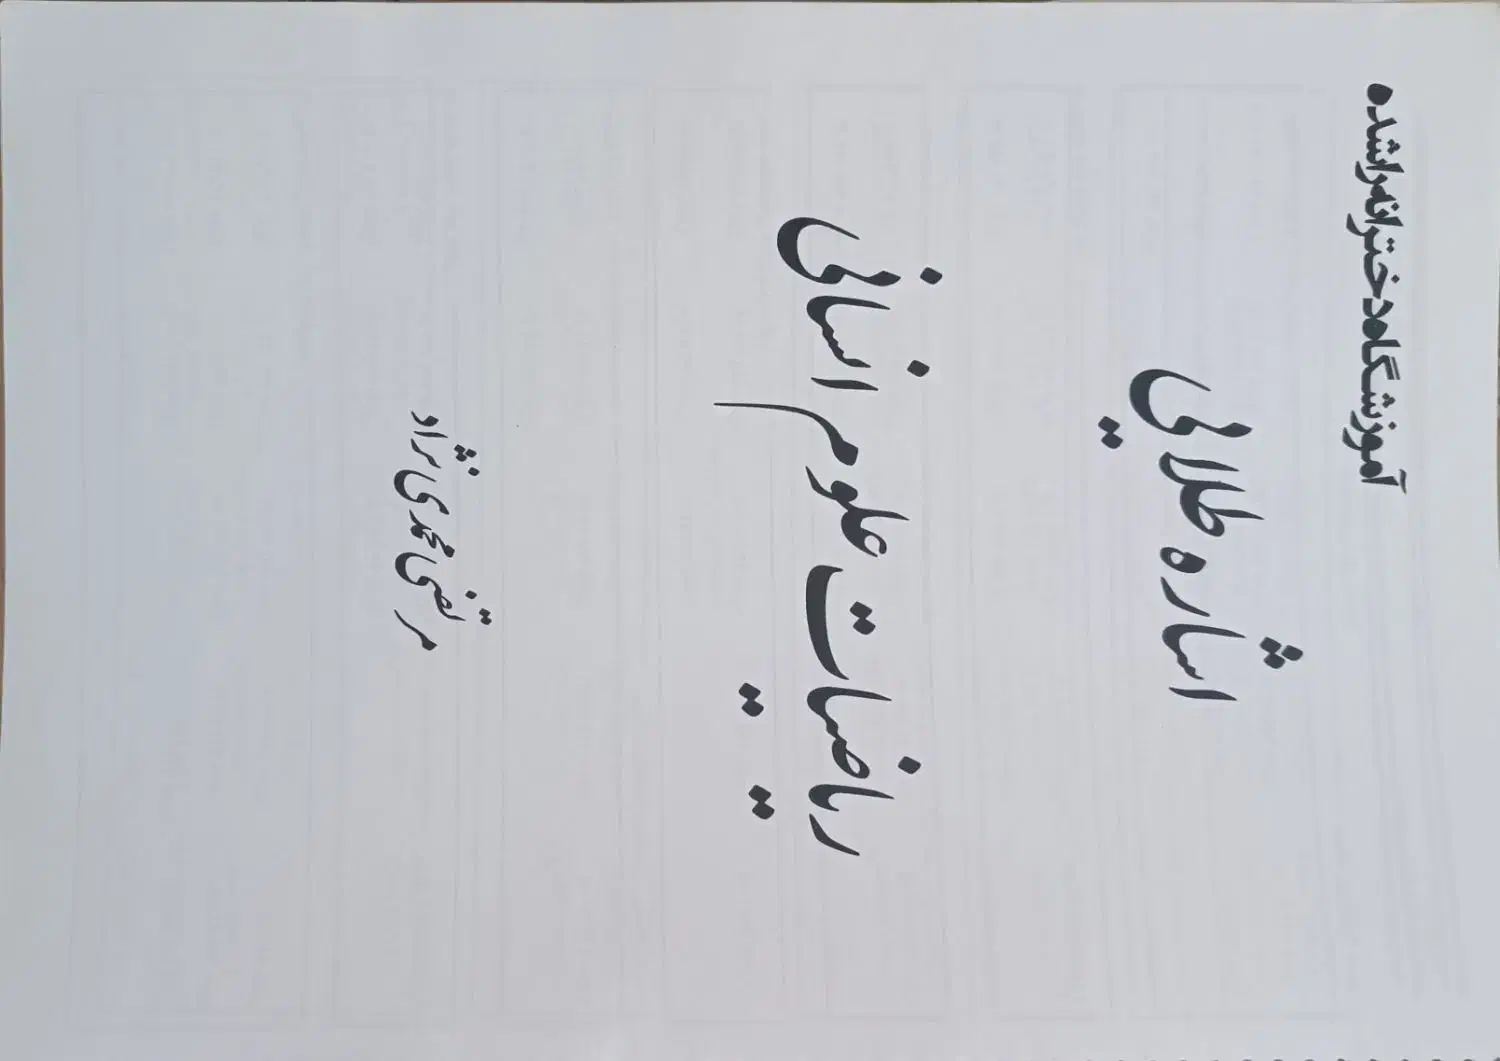 آموزشگاه دخترانه راشده
اشاره طلایی
ریاضیات علوم انسانی
مرتضی محمدی نژاد